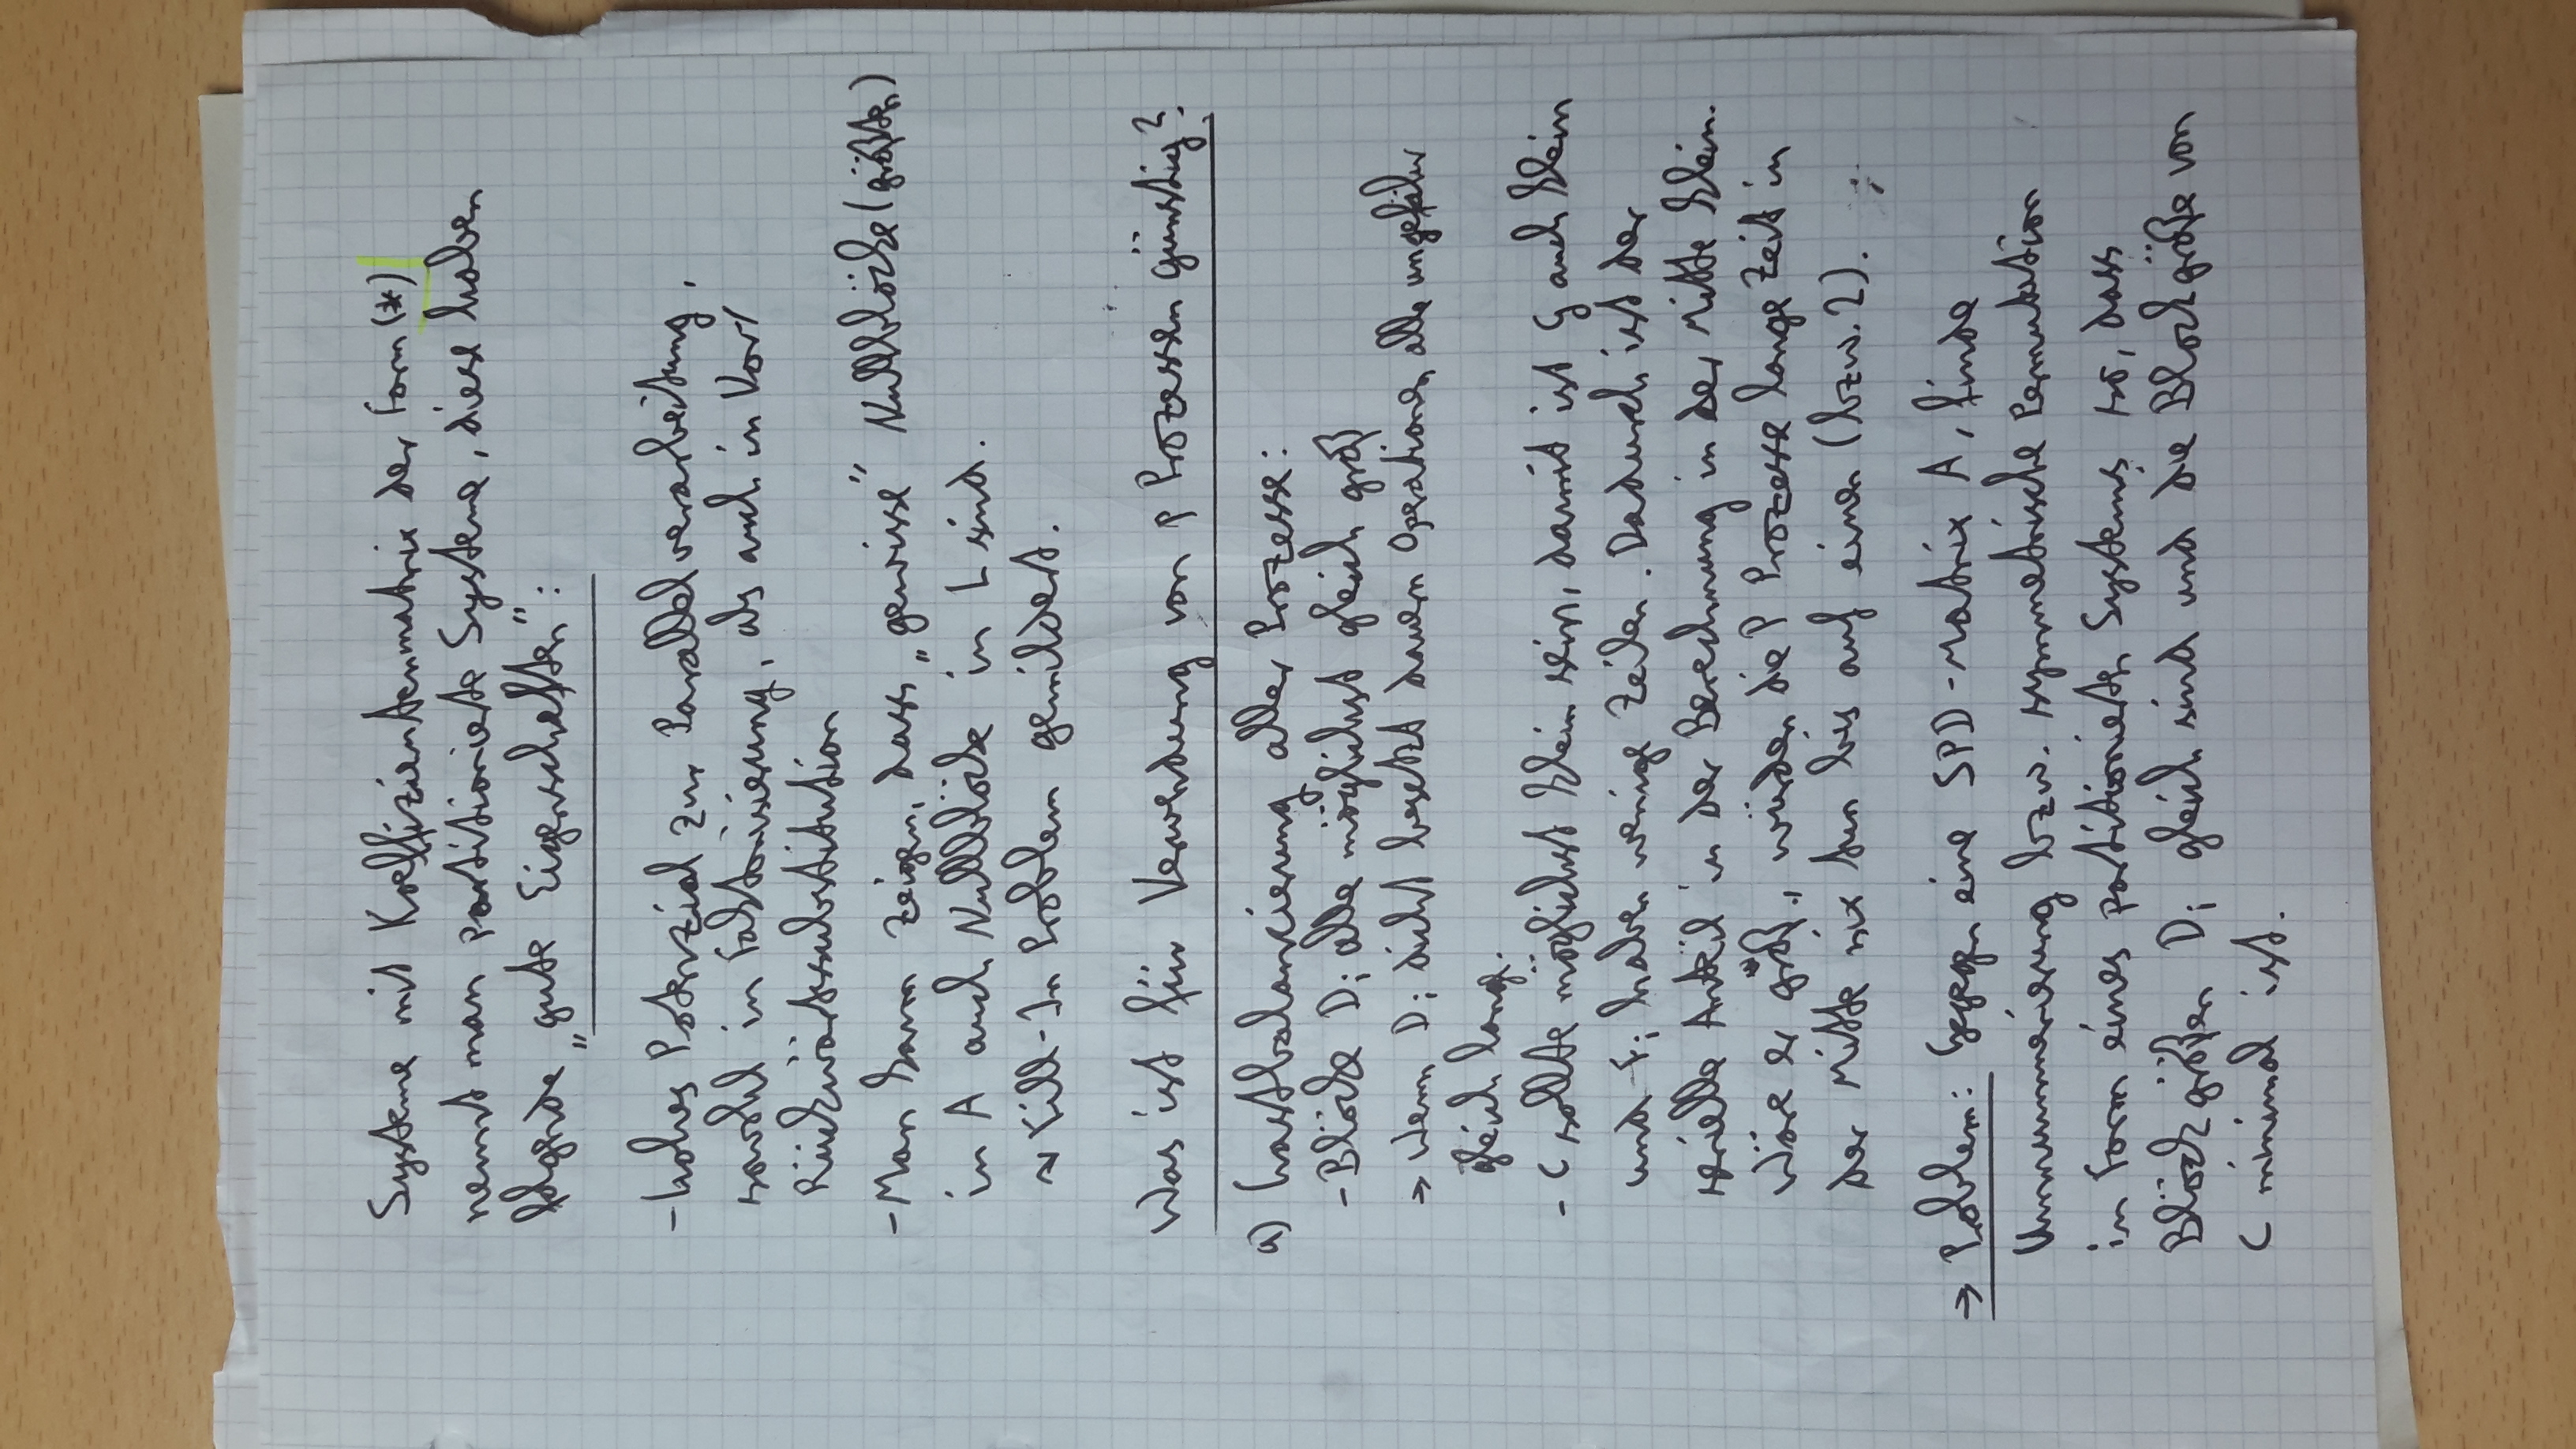 Systeme mit Koeffizientenmatrix der Form (*)
nennt man partitionierte Systeme, diese haben
folgende „gute Eigenschaften":
- hohes Potenzial zur Parallelverarbeitung,
sowohl in Faktorisierung, als auch in Vor/
Rückwärtssubstitution
- Man kann zeigen, dass „gewisse" Nullblöcke (größten)
in A auch Nullblöcke in L sind.
⇝ Fill-In Problem gemildert.
Was ist für Verwendung von P Prozessen günstig?
a) Lastbalancierung aller Prozesse:
- Blöcke Di alle möglichst gleich groß
⇒ wenn Di dicht besetzt dauern Operationen alle ungefähr
gleich lang.
- C sollte möglichst klein sein, damit ist G auch klein
und Fi haben wenige Zeilen. Dadurch ist der
serielle Anteil in der Berechnung in der Mitte klein.
Wäre er groß, würden die P Prozesse lange Zeit in
der Mitte nix tun bis auf einen (bzw. 2).
⇒ Problem: Gegeben eine SPD-Matrix A, finde
Umnummerierung bzw. symmetrische Permutation
in Form eines partitionierten Systems so, dass
Blöckgrößen Di gleich sind und die Blockgröße von
C minimal ist.